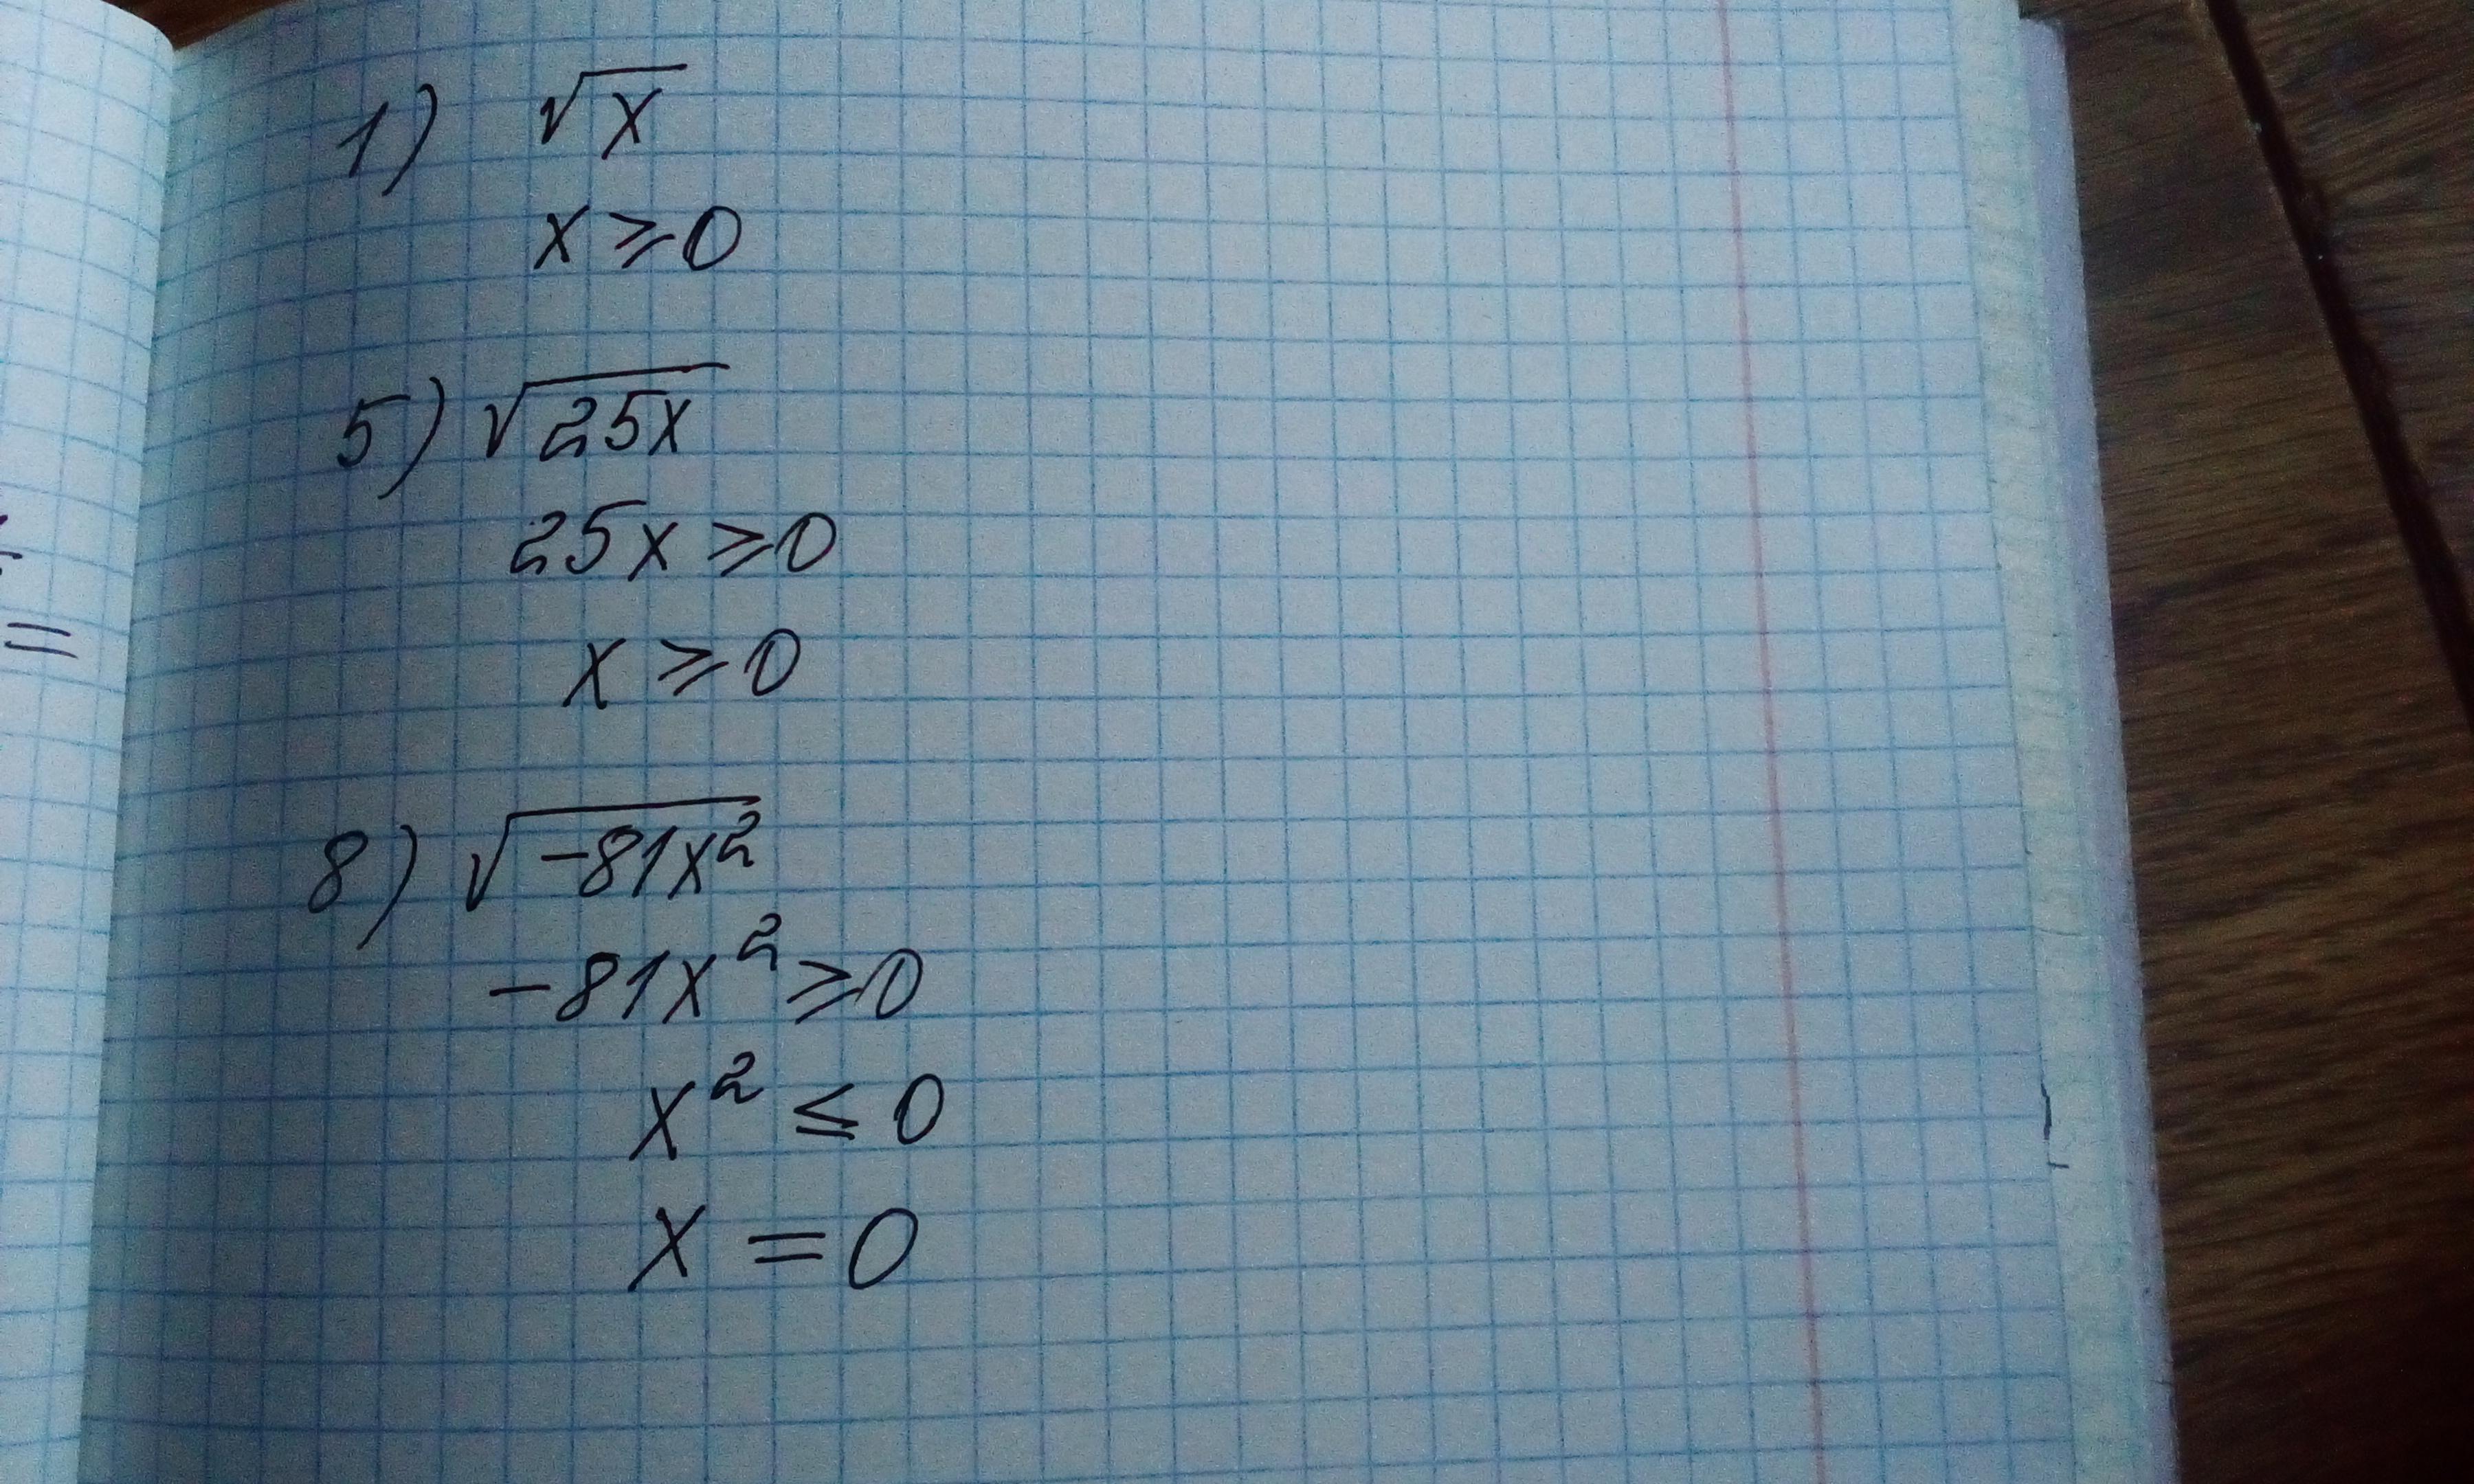 1) √x
x ⩾ 0
5) √25x
25x ⩾ 0
x ⩾ 0
8) √-81x²
-81x² ⩾ 0
x² ≤ 0
x = 0
=